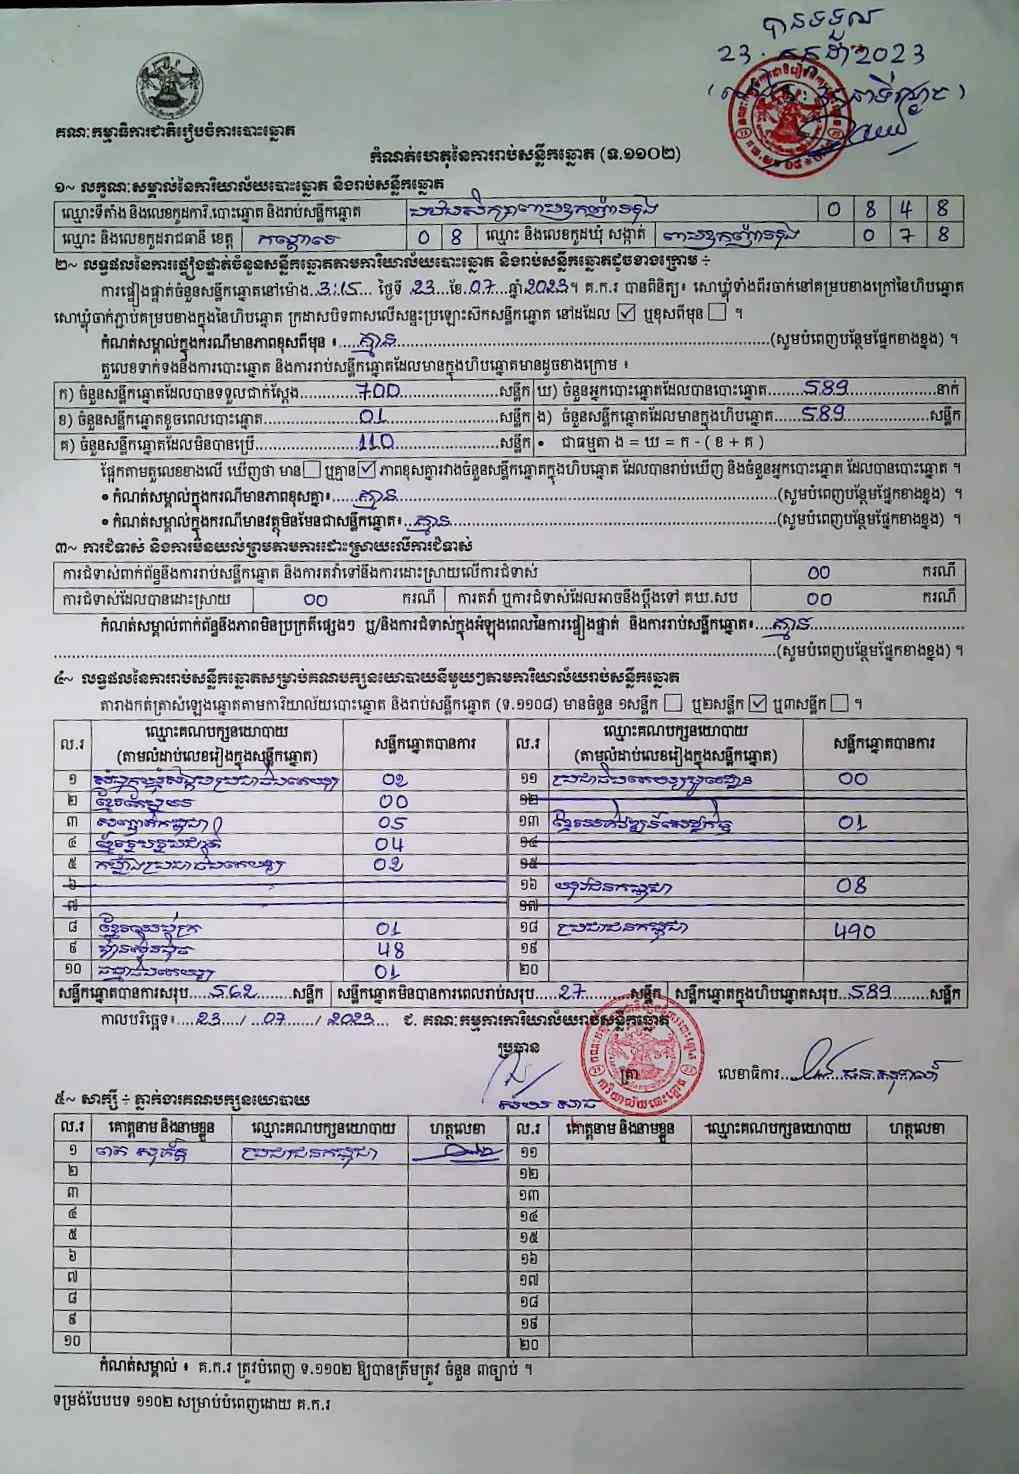 បានទទួល
23 កក្កដា 2023
គណៈកម្មាធិការជាតិរៀបចំការបោះឆ្នោត
កំណត់ហេតុនៃការរាប់សន្លឹកឆ្នោត (ទ.១១០២)
១~ លក្ខណៈសម្គាល់នៃការិយាល័យបោះឆ្នោត និងរាប់សន្លឹកឆ្នោត
ឈ្មោះទីតាំង និងលេខកូដការិ.បោះឆ្នោត និងរាប់សន្លឹកឆ្នោត 0 8 4 8
ឈ្មោះ និងលេខកូដរាជធានី ខេត្ត កណ្តាល 0 8 ឈ្មោះ និងលេខកូដឃុំ សង្កាត់ 0 7 8
២~ លទ្ធផលនៃការផ្ទៀងផ្ទាត់ចំនួនសន្លឹកឆ្នោតតាមការិយាល័យបោះឆ្នោត និងរាប់សន្លឹកឆ្នោតដូចខាងក្រោម ÷
ការផ្ទៀងផ្ទាត់ចំនួនសន្លឹកឆ្នោតនៅម៉ោង 3:15 ថ្ងៃទី 23 ខែ 07 ឆ្នាំ 2023។ គ.ក.រ បានពិនិត្យ៖ សោឃ្លុំទាំងពីរចាក់នៅគម្របខាងក្រៅនៃហិបឆ្នោត
សោឃ្លុំចាក់ភ្ជាប់គម្របខាងក្នុងនៃហិបឆ្នោត ក្រដាសបិទពាសលើសន្ទះប្រឡោះសឹកសន្លឹកឆ្នោត នៅដដែល ☑ ឬខុសពីមុន ☐ ។
កំណត់សម្គាល់ក្នុងករណីមានភាពខុសពីមុន ៖ គ្មាន (សូមបំពេញបន្ថែមផ្នែកខាងខ្នង) ។
តួលេខទាក់ទងនឹងការបោះឆ្នោត និងការរាប់សន្លឹកឆ្នោតដែលមានក្នុងហិបឆ្នោតមានដូចខាងក្រោម ៖
ក) ចំនួនសន្លឹកឆ្នោតដែលបានទទួលជាក់ស្តែង 700 សន្លឹក ឃ) ចំនួនអ្នកបោះឆ្នោតដែលបានបោះឆ្នោត 589 នាក់
ខ) ចំនួនសន្លឹកឆ្នោតខូចពេលបោះឆ្នោត 01 សន្លឹក ង) ចំនួនសន្លឹកឆ្នោតដែលមានក្នុងហិបឆ្នោត 589 សន្លឹក
គ) ចំនួនសន្លឹកឆ្នោតដែលមិនបានប្រើ 110 សន្លឹក • ជាធម្មតា ង = ឃ = ក - ( ខ + គ )
ផ្អែកតាមតួលេខខាងលើ ឃើញថា មាន ☐ ឬគ្មាន ☑ ភាពខុសគ្នារវាងចំនួនសន្លឹកឆ្នោតក្នុងហិបឆ្នោត ដែលបានរាប់ឃើញ និងចំនួនអ្នកបោះឆ្នោត ដែលបានបោះឆ្នោត ។
• កំណត់សម្គាល់ក្នុងករណីមានភាពខុសគ្នា៖ គ្មាន (សូមបំពេញបន្ថែមផ្នែកខាងខ្នង) ។
• កំណត់សម្គាល់ក្នុងករណីមានវត្ថុមិនមែនជាសន្លឹកឆ្នោត៖ គ្មាន (សូមបំពេញបន្ថែមផ្នែកខាងខ្នង) ។
៣~ ការជំទាស់ និងការមិនយល់ព្រមតាមការដោះស្រាយលើការជំទាស់
ការជំទាស់ពាក់ព័ន្ធនឹងការរាប់សន្លឹកឆ្នោត និងការតវ៉ាទៅនឹងការដោះស្រាយលើការជំទាស់ 00 ករណី
ការជំទាស់ដែលបានដោះស្រាយ 00 ករណី ការតវ៉ា ឬការជំទាស់ដែលអាចនឹងប្តឹងទៅ គឃ.សប 00 ករណី
កំណត់សម្គាល់ពាក់ព័ន្ធនឹងភាពមិនប្រក្រតីផ្សេងៗ ឬ/និងការជំទាស់ក្នុងអំឡុងពេលនៃការផ្ទៀងផ្ទាត់ និងការរាប់សន្លឹកឆ្នោត៖ គ្មាន
(សូមបំពេញបន្ថែមផ្នែកខាងខ្នង) ។
៤~ លទ្ធផលនៃការរាប់សន្លឹកឆ្នោតសម្រាប់គណបក្សនយោបាយនីមួយៗតាមការិយាល័យរាប់សន្លឹកឆ្នោត
តារាងកត់ត្រាសំឡេងឆ្នោតតាមការិយាល័យបោះឆ្នោត និងរាប់សន្លឹកឆ្នោត (ទ.១១០៨) មានចំនួន ១សន្លឹក ☐ ឬ២សន្លឹក ☑ ឬ៣សន្លឹក ☐ ។
ល.រ ឈ្មោះគណបក្សនយោបាយ (តាមលំដាប់លេខរៀងក្នុងសន្លឹកឆ្នោត) សន្លឹកឆ្នោតបានការ ល.រ ឈ្មោះគណបក្សនយោបាយ (តាមលំដាប់លេខរៀងក្នុងសន្លឹកឆ្នោត) សន្លឹកឆ្នោតបានការ
១ 02 ១១ 00
២ 00 ១២
៣ 05 ១៣ 01
៤ 04 ១៤
៥ 02 ១៥
៦ ១៦ 08
៧ ១៧
៨ 01 ១៨ ប្រជាជនកម្ពុជា 490
៩ ហ្វ៊ុនស៊ិនប៉ិច 48 ១៩
១០ 01 ២០
សន្លឹកឆ្នោតបានការសរុប 562 សន្លឹក សន្លឹកឆ្នោតមិនបានការពេលរាប់សរុប 27 សន្លឹក សន្លឹកឆ្នោតក្នុងហិបឆ្នោតសរុប 589 សន្លឹក
កាលបរិច្ឆេទ៖ 23 / 07 / 2023 ជ. គណៈកម្មការការិយាល័យរាប់សន្លឹកឆ្នោត
ប្រធាន
ត្រា លេខាធិការ
៥~ សាក្សី ÷ ភ្នាក់ងារគណបក្សនយោបាយ
ល.រ គោត្តនាម និងនាមខ្លួន ឈ្មោះគណបក្សនយោបាយ ហត្ថលេខា ល.រ គោត្តនាម និងនាមខ្លួន ឈ្មោះគណបក្សនយោបាយ ហត្ថលេខា
១ ប្រជាជនកម្ពុជា ១១
២ ១២
៣ ១៣
៤ ១៤
៥ ១៥
៦ ១៦
៧ ១៧
៨ ១៨
៩ ១៩
១០ ២០
កំណត់សម្គាល់ ៖ គ.ក.រ ត្រូវបំពេញ ទ.១១០២ ឱ្យបានត្រឹមត្រូវ ចំនួន ៣ច្បាប់ ។
ទម្រង់បែបបទ ១១០២ សម្រាប់បំពេញដោយ គ.ក.រ